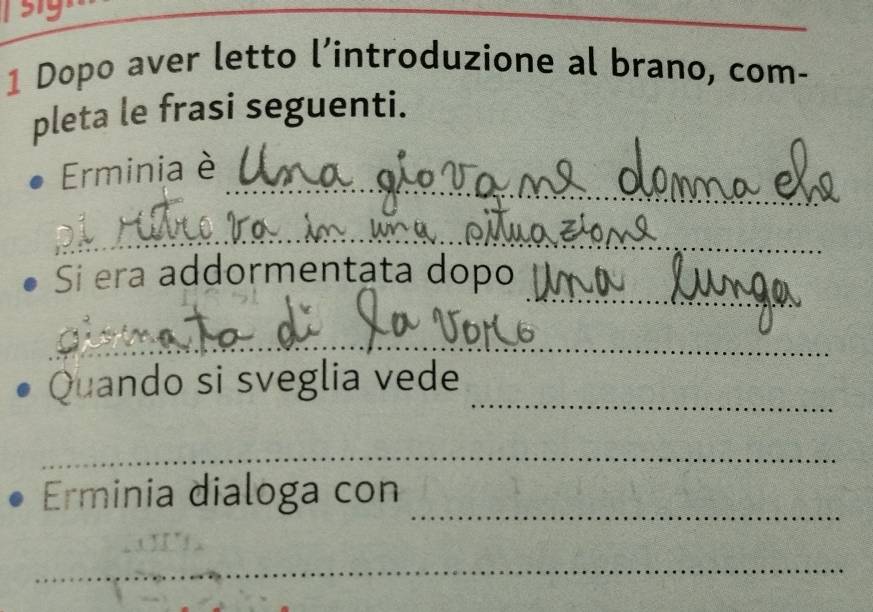 1 Dopo aver letto l'introduzione al brano, com-
pleta le frasi seguenti.
• Erminia è Una giovane donna che
si ritrova in una situazione
• Si era addormentata dopo Una lunga
giornata di lavoro
• Quando si sveglia vede
• Erminia dialoga con